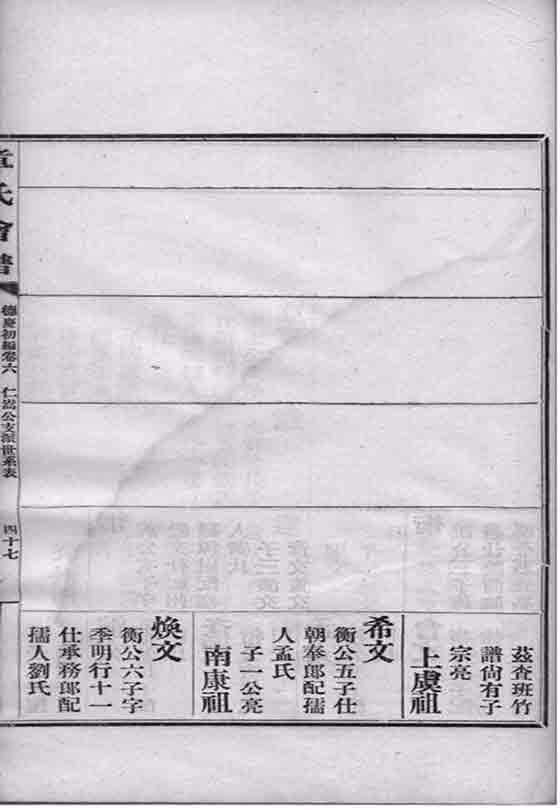 茲查班竹
譜尙有子
宗亮
上虞祖
希文
衡公五子仕
朝奉郎配孺
人孟氏
子一公亮
南康祖
煥文
衡公六子字
季明行十一
仕承務郎配
孺人劉氏
章氏會譜
德慶初編卷六 仁嵩公支派世系表
四十七